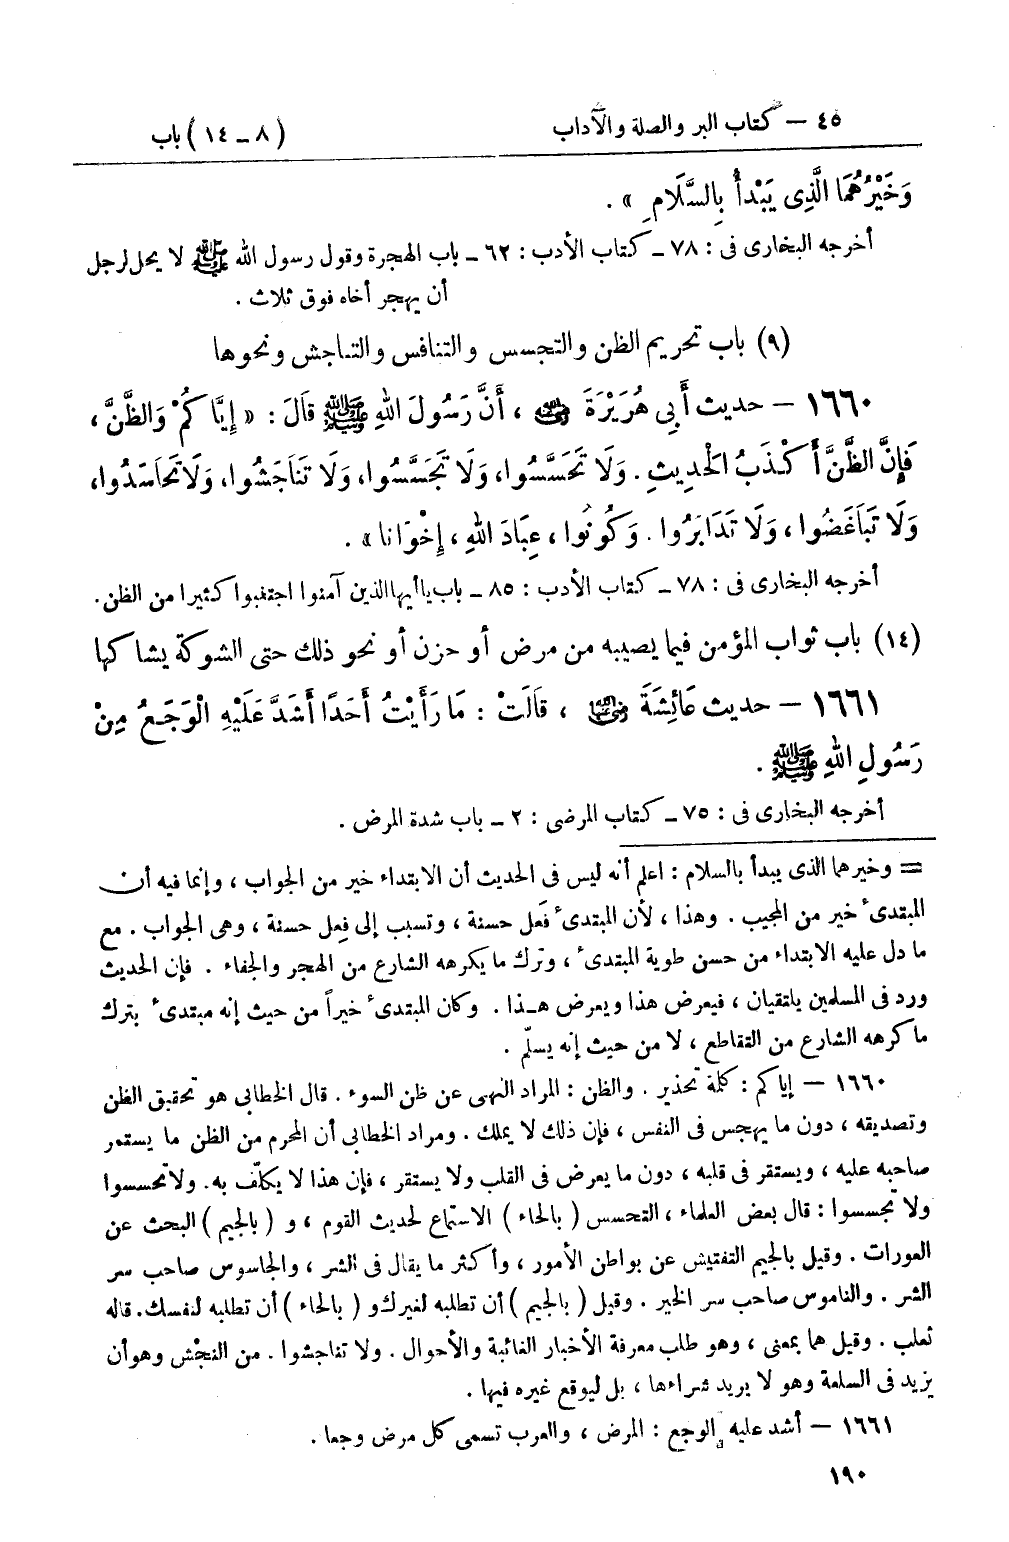 ٤٥ – كتاب البر والصلة والآداب (٨ – ١٤) باب
وَخَيْرُهُمَا الَّذِى يَبْدأُ بِالسَّلَامِ » .
أخرجه البخارى فى : ٧٨ – كتاب الأدب : ٦٢ – باب الهجرة وقول رسول الله ﷺ لا يحل لرجل
أن يهجر أخاه فوق ثلاث .
(٩) باب تحريم الظن والتجسس والتنافس والتناجش ونحوها
١٦٦٠ – حديث أَبِى هُرَيْرَةَ رضي الله عنه ، أَنَّ رَسُولَ اللهِ ﷺ قَالَ : « إِيَّاكُمْ وَالظَّنَّ ،
فَإِنَّ الظَّنَّ أَكْذَبُ الْحَدِيثِ . وَلَا تَحَسَّسُوا، وَلَا تَجَسَّسُوا، وَلَا تَنَاجَشُوا، وَلَا تَحَاسَدُوا،
وَلَا تَبَاغَضُوا ، وَلَا تَدَابَرُوا . وَكُونُوا ، عِبَادَ اللهِ ، إِخْوَانا » .
أخرجه البخارى فى : ٧٨ – كتاب الأدب : ٨٥ – باب ياأيها الذين آمنوا اجتنبوا كثيرا من الظن.
(١٤) باب ثواب المؤمن فيما يصيبه من مرض أو حزن أو نحو ذلك حتى الشوكة يشاكها
١٦٦١ – حديث عَائِشَةَ رضي الله عنها ، قَالَتْ : مَا رَأَيْتُ أَحَدًا أَشَدَّ عَلَيْهِ الْوَجَعُ مِنْ
رَسُولِ اللهِ ﷺ .
أخرجه البخارى فى : ٧٥ – كتاب المرضى : ٢ – باب شدة المرض .
= وخيرهما الذى يبدأ بالسلام : اعلم أنه ليس فى الحديث أن الابتداء خير من الجواب ، وإنما فيه أن
المبتدىء خير من المجيب . وهذا ، لأن المبتدىء فَعل حسنة ، وتسبب إلى فِعل حسنة ، وهى الجواب . مع
ما دل عليه الابتداء من حسن طوية المبتدىء ، وترك ما يكرهه الشارع من الهجر والجفاء . فإن الحديث
ورد فى المسلمين يلتقيان ، فيعرض هذا ويعرض هـذا . وكان المبتدىء خيراً من حيث إنه مبتدىء بترك
ما كرهه الشارع من التقاطع ، لا من حيث إنه يسلّم .
١٦٦٠ – إياكم : كلمة تحذير . والظن : المراد النهى عن ظن السوء . قال الخطابى هو تحقيق الظن
وتصديقه ، دون ما يهجس فى النفس ، فإن ذلك لا يملك . ومراد الخطابى أن المحرم من الظن ما يستمر
صاحبه عليه ، ويستقر فى قلبه ، دون ما يعرض فى القلب ولا يستقر ، فإن هذا لا يكلّف به . ولا تحسسوا
ولا تجسسوا : قال بعض العلماء ، التحسس ( بالحاء ) الاستماع لحديث القوم ، و ( بالجيم ) البحث عن
العورات . وقيل بالجيم التفتيش عن بواطن الأمور ، وأكثر ما يقال فى الشر ، والجاسوس صاحب سر
الشر . والناموس صاحب سر الخير . وقيل ( بالجيم ) أن تطلبه لغيرك و ( بالحاء ) أن تطلبه لنفسك. قاله
ثعلب . وقيل هما بمعنى ، وهو طلب معرفة الأخبار الغائبة والأحوال . ولا تناجشوا . من النجْش وهو أن
يزيد فى السلعة وهو لا يريد شراءها ، بل ليوقع غيره فيها .
١٦٦١ – أشد عليه الوجع : المرض ، والعرب تسمى كل مرض وجعا .
١٩٠